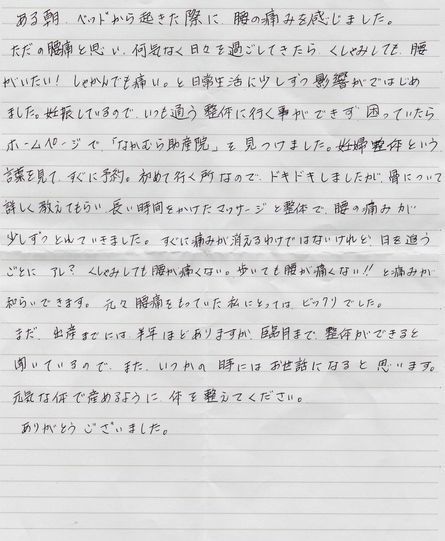 ある朝、ベッドから起きた際に、腰の痛みを感じました。
ただの腰痛と思い、何気なく日々を過ごしてきたら くしゃみしても、腰
がいたい! しゃがんでも痛い。と日常生活に少しずつ影響がではじめ
ました。妊娠しているので、いつも通う整体に行く事ができず 困っていたら
ホームページで、「なかむら助産院」を見つけました。妊婦整体という
言葉を見て、すぐに予約。初めて行く所なので、ドキドキしましたが、骨について
詳しく教えてもらい、長い時間をかけたマッサージと整体で、腰の痛みが
少しずつとれていきました。すぐに痛みが消えるわけではないけれど、日を追う
ごとに アレ? くしゃみしても腰が痛くない。歩いても腰が痛くない!! と痛みが
和らいできます。元々腰痛をもっていた私にとっては、ビックリでした。
まだ、出産までには半年ほどありますが、臨月まで、整体ができると
聞いているので、また、いつかの時にはお世話になると思います。
元気な体で産めるように、体を整えてください。
ありがとうございました。